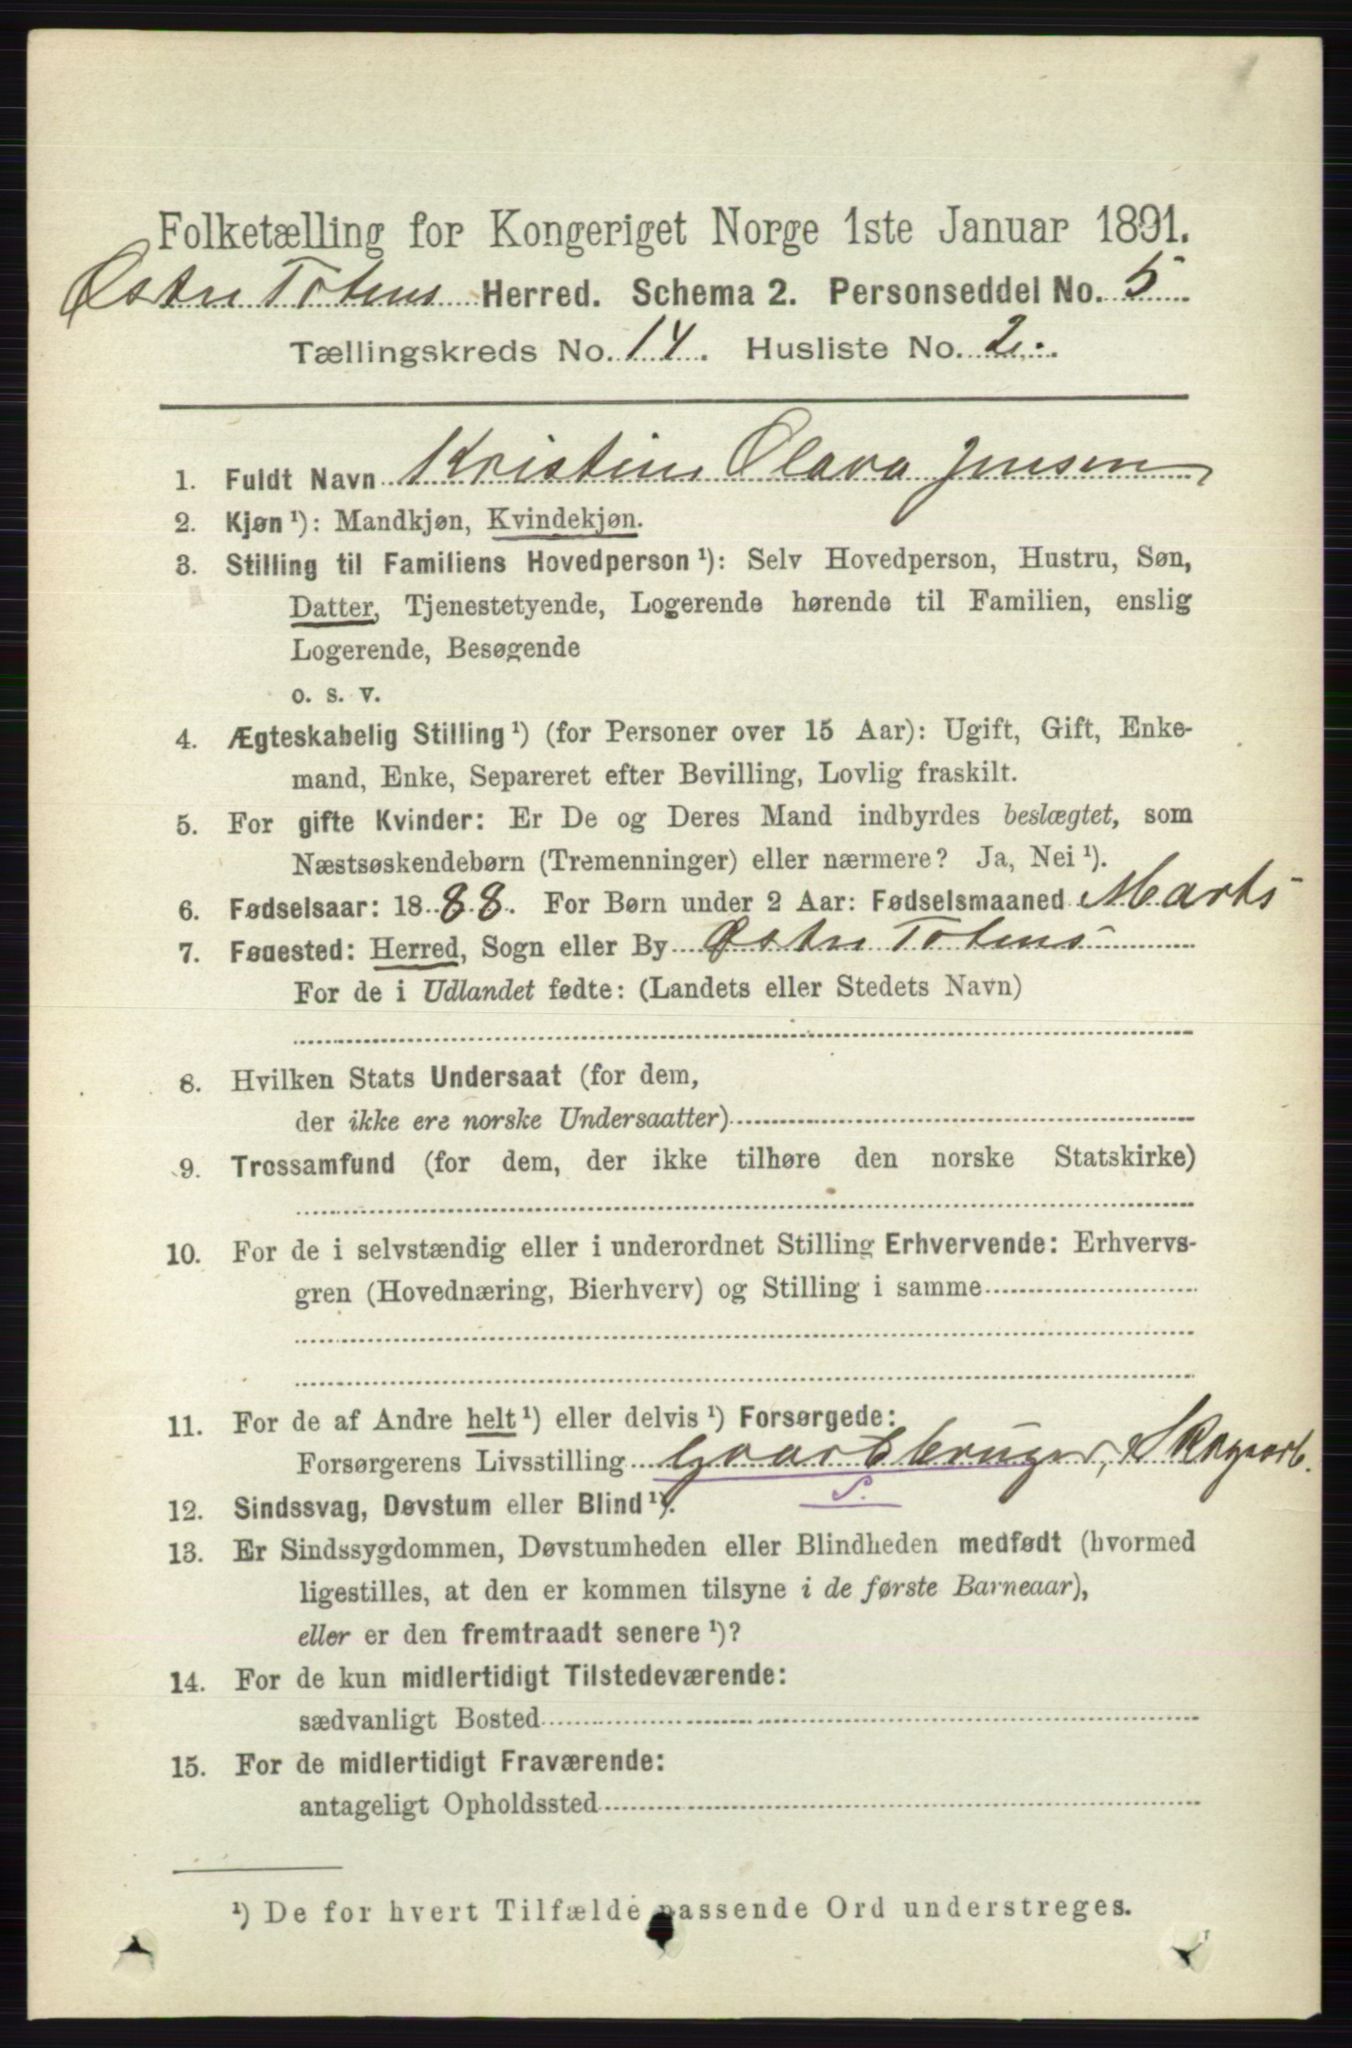 Folketælling for Kongeriget Norge 1ste Januar 1891.
Østre Totens Herred. Schema 2. Personseddel No. 5
Tællingskreds No. 14. Husliste No. 2.
1. Fuldt Navn Kristine Olava Jensen
2. Kjøn ¹): Mandkjøn, Kvindekjøn.
3. Stilling til Familiens Hovedperson ¹): Selv Hovedperson, Hustru, Søn,
Datter, Tjenestetyende, Logerende hørende til Familien, enslig
Logerende, Besøgende
o. s. v.
4. Ægteskabelig Stilling ¹) (for Personer over 15 Aar): Ugift, Gift, Enke-
mand, Enke, Separeret efter Bevilling, Lovlig fraskilt.
5. For gifte Kvinder: Er De og Deres Mand indbyrdes beslægtet, som
Næstsøskendebørn (Tremenninger) eller nærmere? Ja, Nei ¹).
6. Fødselsaar: 1888. For Børn under 2 Aar: Fødselsmaaned Marts
7. Fødested: Herred, Sogn eller By Østre Totens
For de i Udlandet fødte: (Landets eller Stedets Navn)
8. Hvilken Stats Undersaat (for dem,
der ikke ere norske Undersaatter)
9. Trossamfund (for dem, der ikke tilhøre den norske Statskirke)
10. For de i selvstændig eller i underordnet Stilling Erhvervende: Erhvervs-
gren (Hovednæring, Bierhverv) og Stilling i samme
11. For de af Andre helt ¹) eller delvis ¹) Forsørgede:
Forsørgerens Livsstilling Gaardbruger, Skogarb.
S.
12. Sindssvag, Døvstum eller Blind ¹).
13. Er Sindssygdommen, Døvstumheden eller Blindheden medfødt (hvormed
ligestilles, at den er kommen tilsyne i de første Barneaar),
eller er den fremtraadt senere ¹)?
14. For de kun midlertidigt Tilstedeværende:
sædvanligt Bosted
15. For de midlertidigt Fraværende:
antageligt Opholdssted
¹) De for hvert Tilfælde passende Ord understreges.